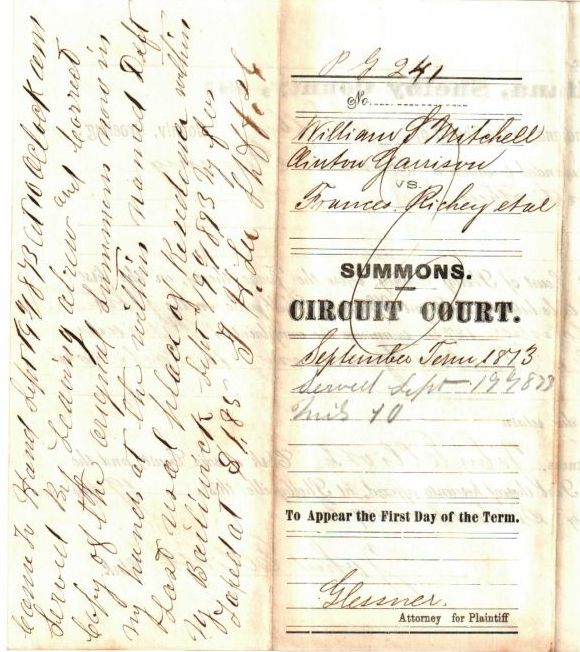 Came to Hand Sept 19th 1873 at 10 Oclock am
Served By Leaving a true and correct
Copy of the original Summons now in
my hands at the within named Deft
Last usual place of Residence within
my Bailiwick Sept 19th 1873 my fees
Taxed at $1,85
P G 241
No.
William S Mitchell
Clinton Garrison
vs.
Frances Richey et al
SUMMONS.
CIRCUIT COURT.
September Term 1873
Served Sept 19th 1873
10
To Appear the First Day of the Term.
Glessner.
Attorney for Plaintiff